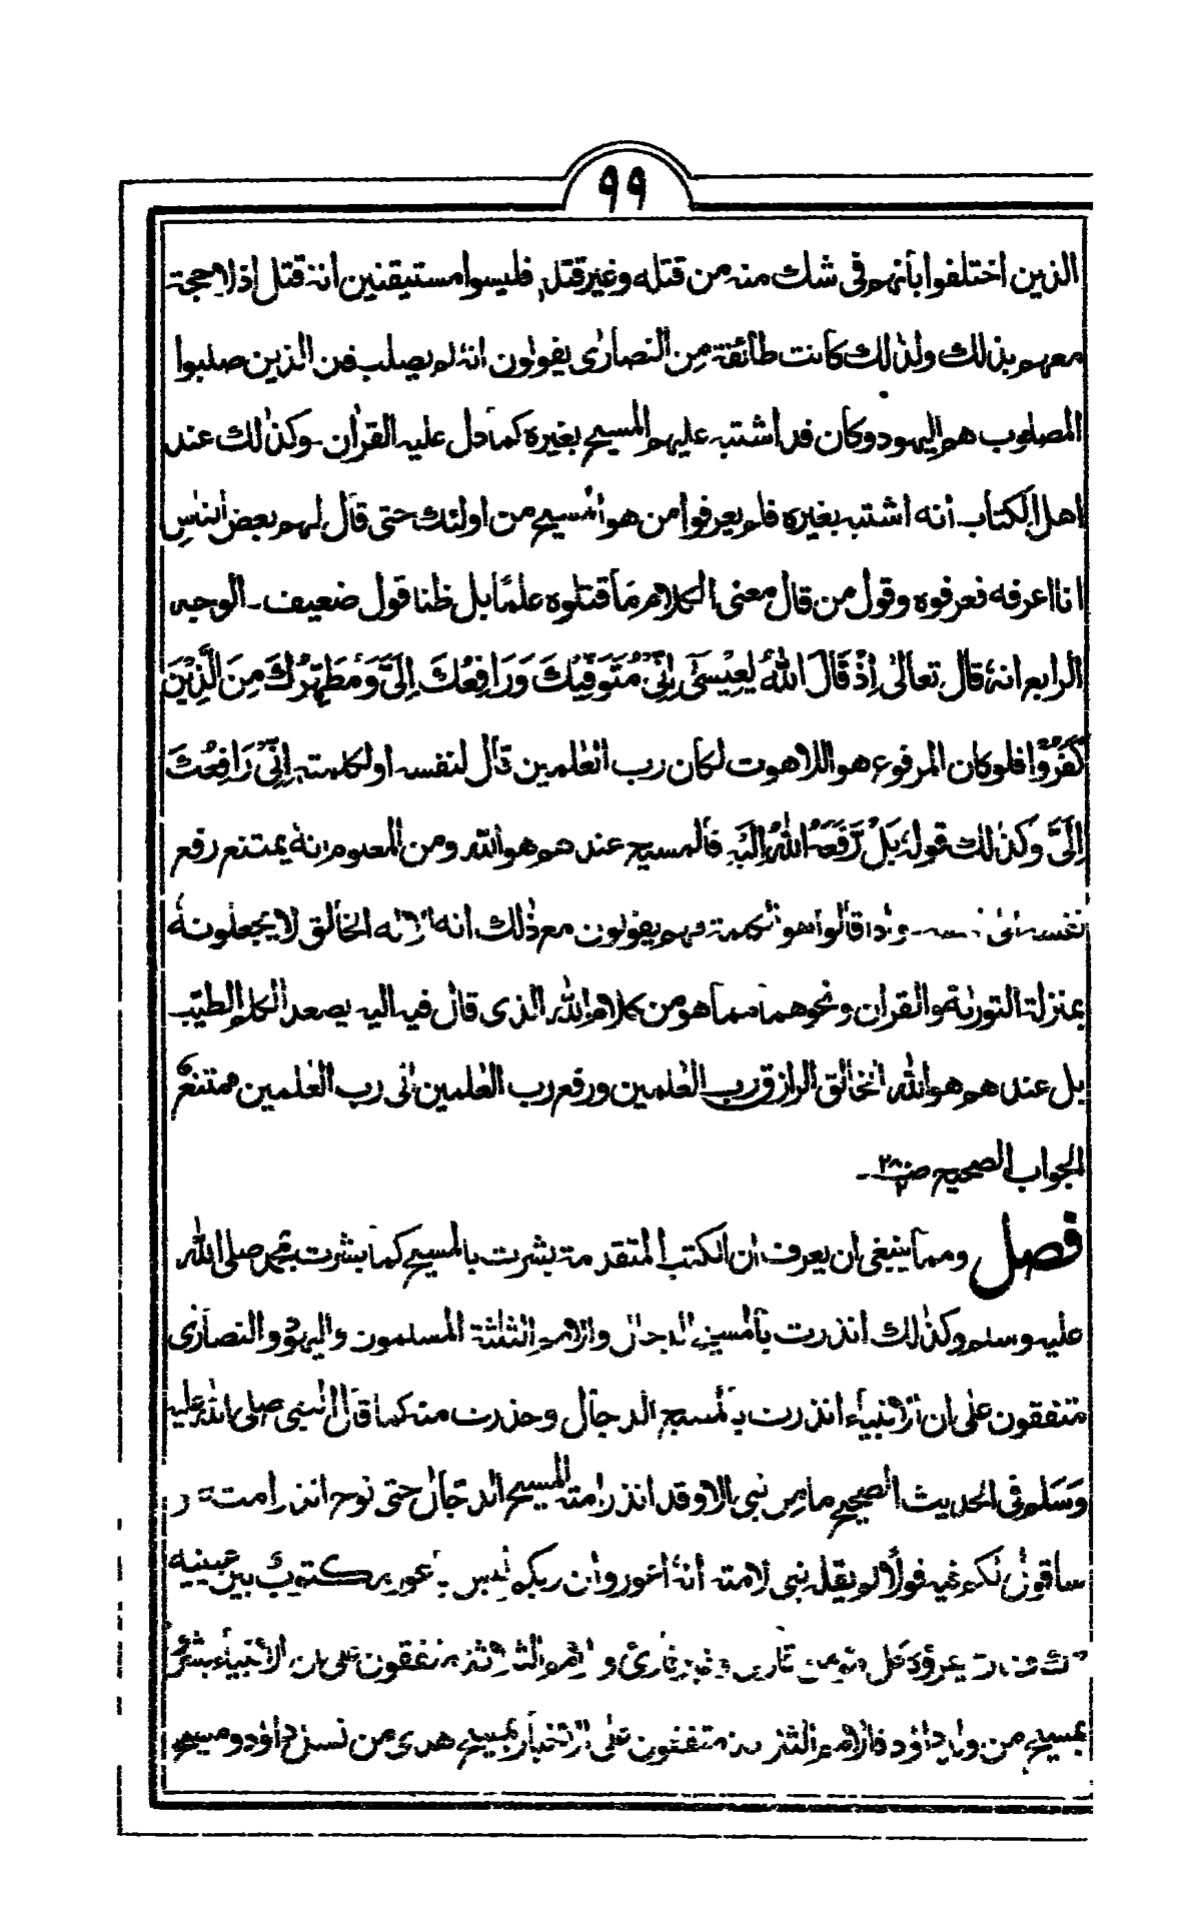 ٩٩
الذين اختلفوا بأنهم فى شك منه من قتله وغير قتل فليسوا مستيقنين انه قتل اذلا حجة
معهم بذلك ولذلك كانت طائفة من النصارى يقولون انه لم يصلب فن الذين صلبوا
المصلوب هم اليهود وكان قد اشتبه عليهم المسيح بغيره كما دل عليه القران ۔ وكذلك عند
اهل الكتاب انه اشتبه بغيره فلم يعرفوا من هو المسيح من اولئك حتى قال لهم بعض الناس
انا اعرفه فعرفوه وقول من قال معنى الكلام ما قتلوه علمًا بل ظنا قول ضعيف ۔ الوجه
الرابع انه قال تعالىٰ اِذْ قَالَ اللّٰهُ يٰعِيْسىٰٓ اِنِّىْ مُتَوَفِّيْكَ وَرَافِعُكَ اِلَىَّ وَمُطَهِّرُكَ مِنَ الَّذِيْنَ
كَفَرُوْا فلو كان المرفوع هو اللاهوت لكان رب العٰلمين قال لنفسه او لكلمته اِنِّىْ رَافِعُكَ
اِلَىَّ وكذٰلك قوله بَلْ رَّفَعَهُ اللّٰهُ اِلَيْهِ فالمسيح عند هم هو الله ومن المعلوم انه يمتنع رفع
نفسه الى ۔ واذا قالوا هو الكلمة فهم يقولون مع ذٰلك انه الاله الخالق لا يجعلونه
بمنزلة التورٰىة والقران ونحوهما مما هو من كلام الله الذى قال فيه اليه يصعد الكلم الطيب
بل عند هم هو الله الخالق الرازق رب العٰلمين ورفع رب العٰلمين الى رب العٰلمين ممتنع
الجواب الصحيح ۔
فصل ومما ينبغى ان يعرف ان الكتب المتقدمة بشرت بالمسيح كما بشرت بمحمد صلى الله
عليه وسلم وكذٰلك انذرت بالمسيح الدجال والامم الثلثة المسلمون واليهود والنصارٰى
متفقون على ان الانبياء انذرت بالمسيح الدجال وحذرت منه كما قال النبى صلى الله عليه
وَسَلم فى الحديث الصحيح ما من نبى الا وقد انذر امته المسيح الدجال حتى نوح انذر امته و
ساقول لكم فيه قولا لم يقله نبى لامته انه اعور وان ربكم ليس باعور مكتوب بين عينيه
ك ف ر يقرؤه كل مؤمن قارئ وغير قارئ والامم الثلاثة متفقون على ان الانبياء بشروا
بمسيح من ولد داؤد فالامم الثلثة متفقون على الاخبار بمسيح هدى من نسل داؤد ومسيح